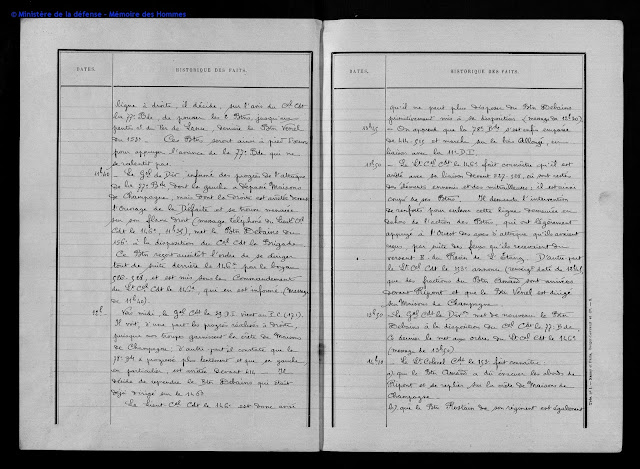 © Ministère de la défense - Mémoire des Hommes
DATES.
HISTORIQUE DES FAITS.
ligne à droite, il décide, sur l'avis du Cel Cdt
la 77e Bde, de pousser les 2 Btns jusqu'aux
pentes de
du 153e. Ces Btns seront ainsi à pied d'œuvre
pour appuyer l'avance de la 77e Bde qui ne
se ralentit pas.
11h40 — Le Gal de Don informé des progrès de l'attaque
de la 77e Bde dont la gauche a dépassé Maisons
de Champagne, mais dont la droite est arrêtée devant
l'Ouvrage de la Défaite et se trouve menacée
sur son flanc droit (message téléphoné du Lieut Cel
Cdt le 146e, 11h35), met le Btn Debains du
156e à la disposition du Cel Cdt la Brigade.
Ce Btn reçoit aussitôt l'ordre de se diriger
tout de suite derrière le 146e par le boyau
et est mis sous le Commandement
du Lt Cel Cdt le 146e, qui en est informé (message
de 11h40).
12h Vers midi, le Gal Cdt la 39 D.I. vient au P.C.
Il voit, d'une part les progrès réalisés à droite,
puisque nos troupes garnissent la crête de Maisons
de Champagne; d'autre part il constate que la
78e Bde a progressé plus lentement et que sa gauche
en particulier est arrêtée devant Il
décide de reprendre le Btn Debains qui était
déjà dirigé sur le 146e
Le Lieut Cel Cdt le 146e est donc avisé
DATES.
HISTORIQUE DES FAITS.
qu'il ne peut plus disposer du Btn Debains
primitivement mis à sa disposition (message de 12h20).
— On apprend que la 78e Bde s'est enfin emparée
de et marche sur le bois Allongé, en
liaison avec la 11e D.I.
— Le Lt Cel Cdt le 146e fait connaître qu'il est
arrêté avec sa liaison devant où sont cotés
des éléments ennemis et des mitrailleuses; il est ainsi
coupé de ses Btns. Il demande l'intervention
de renforts pour enlever cette ligne demeurée en
dehors de l'action des Btns, qui ont légèrement
appuyé à l'Ouest des axes d'attaque qu'ils avaient
reçus, par suite des feux qu'ils recevaient du
versant du Ravin de l'Etang. D'autre part
le Lt Cel Cdt le 153e annonce
que des fractions du Btn sont arrivées
devant Ripont et que le Btn Vénel est dirigé
sur Maisons de Champagne.
— Le Gal Cdt la Don met de nouveau le Btn
Debains à la disposition du Cel Cdt la 77 Bde.
Ce dernier le met aux ordres du Lt Cel Cdt le 146e
(message de 13h50)
— Le Lt Colonel Cdt le 153e fait connaître:
a) que le Btn a dû évacuer les abords de
Ripont et se replier sur la crête de Maisons de
Champagne.
b) que le Btn Rostain de son régiment est également